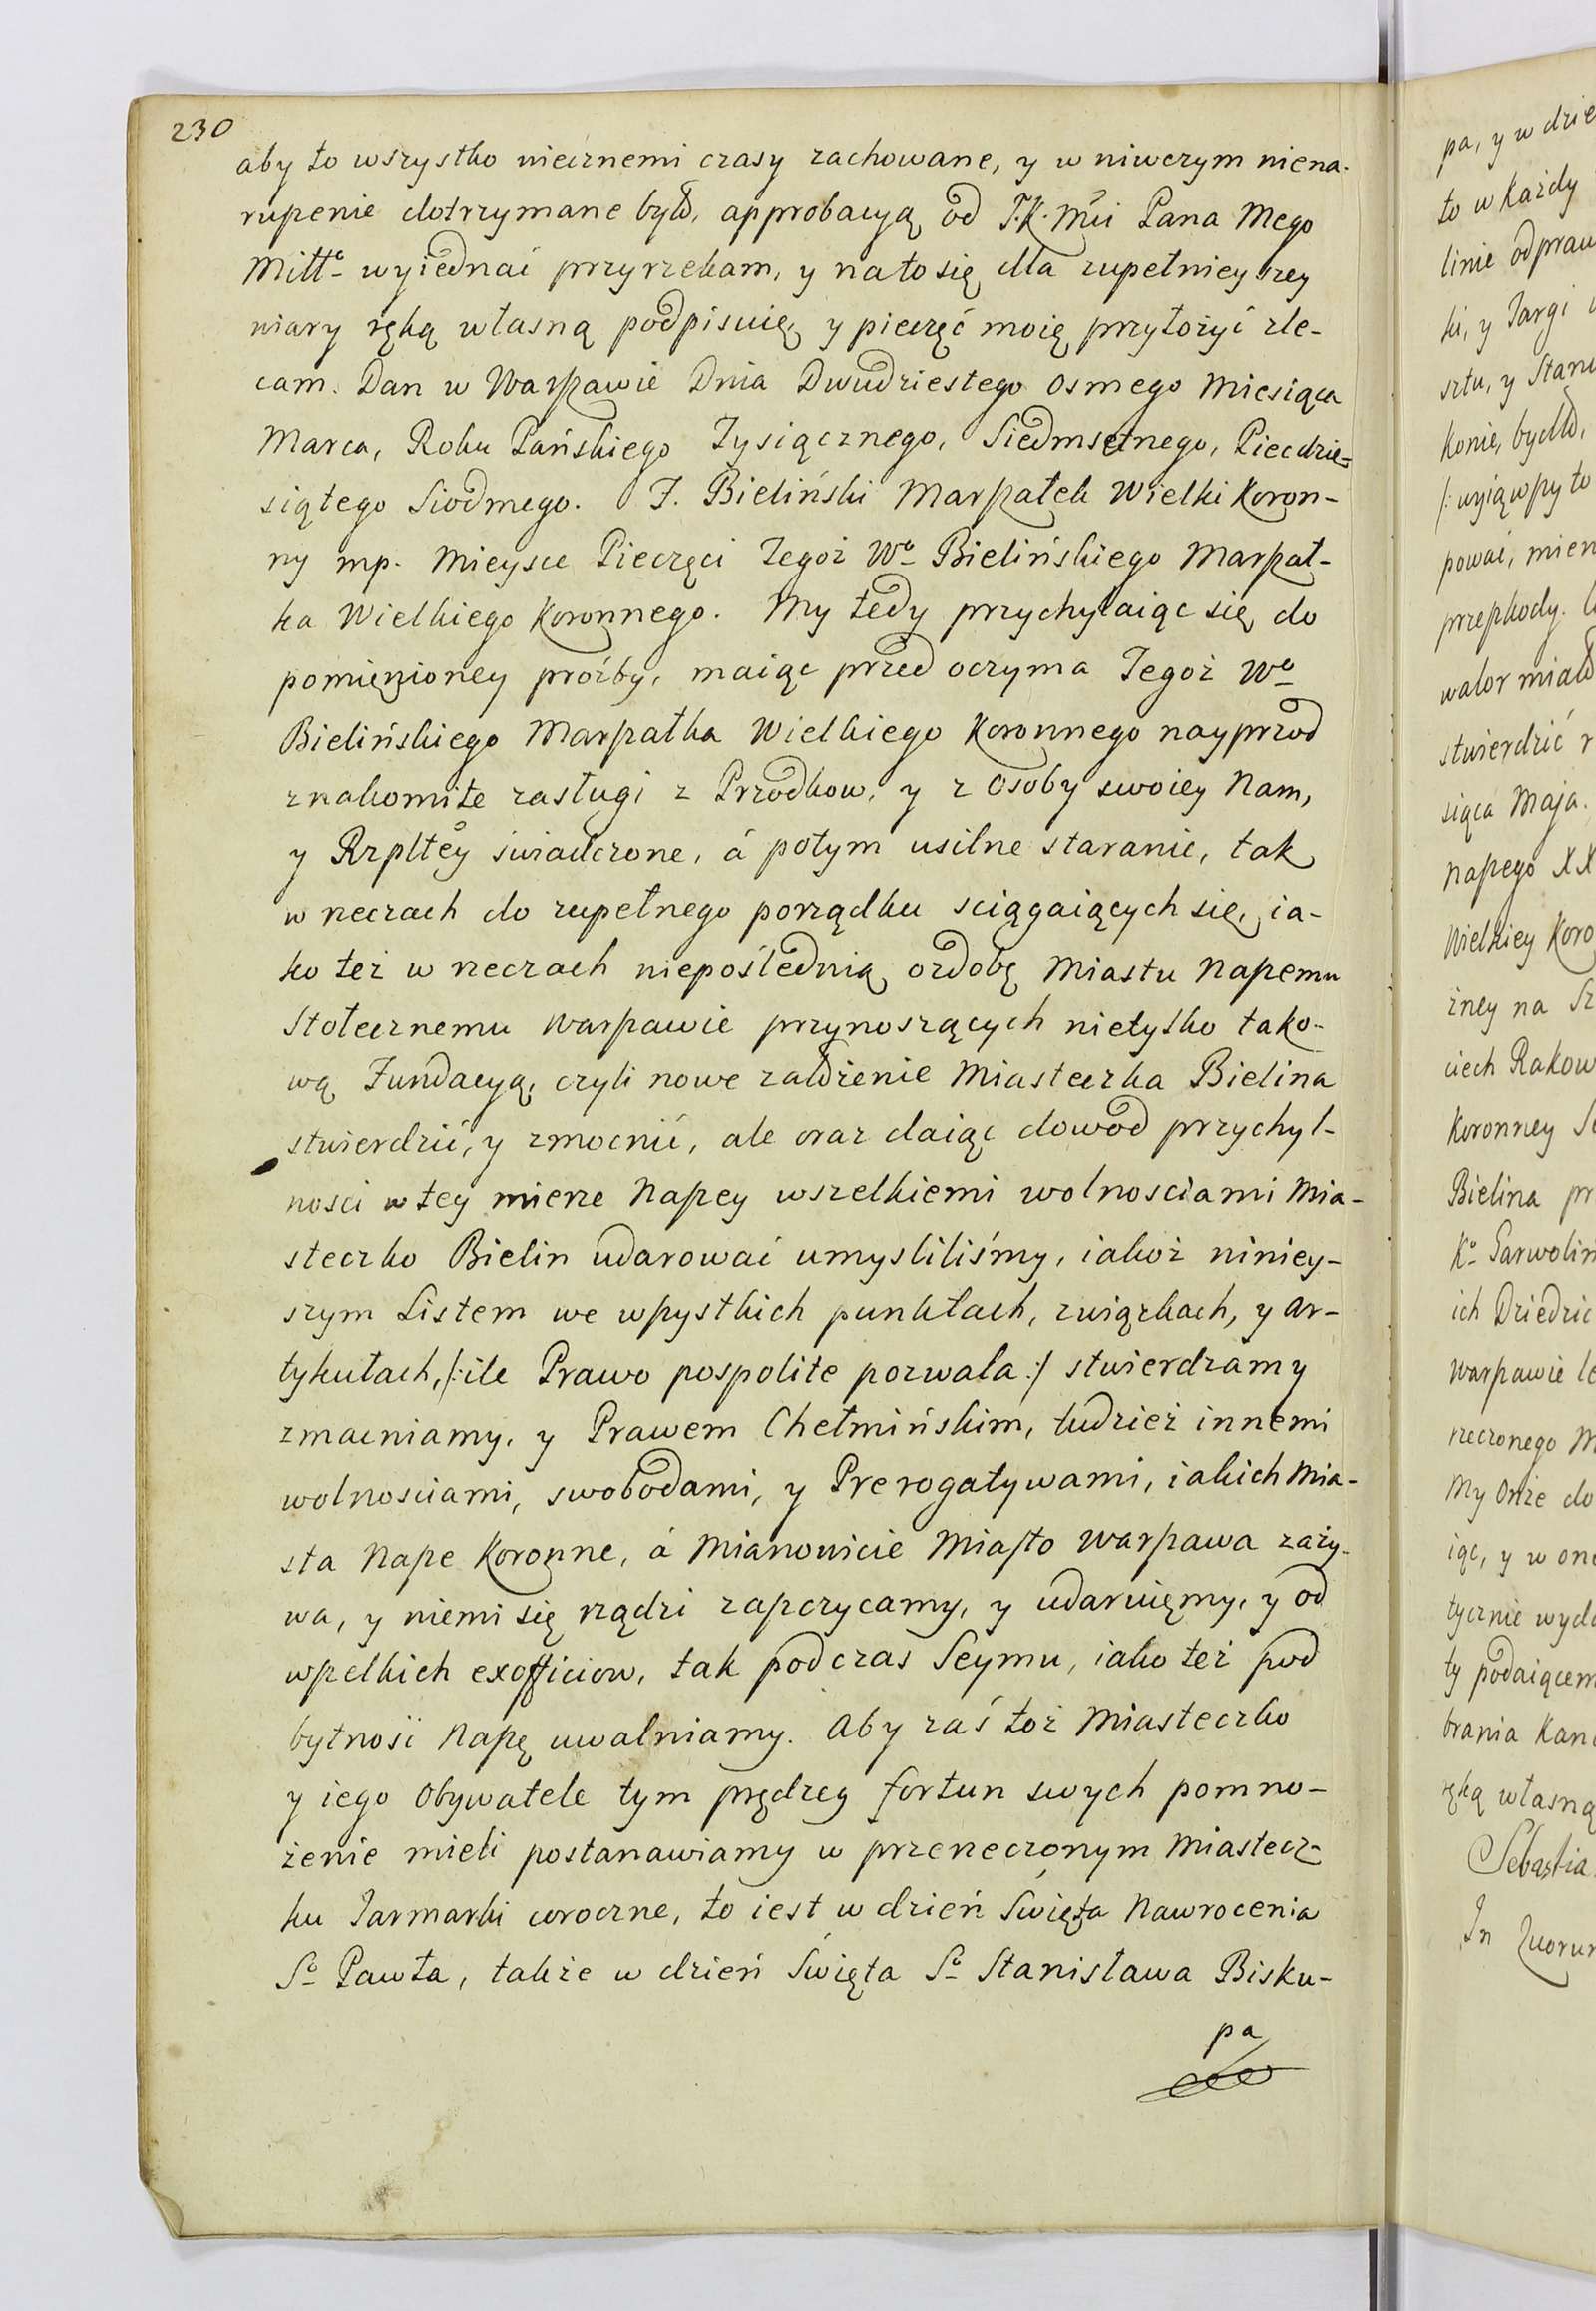 230
aby to wszystko wiecznemi czasy zachowane, y w niwczym niena-
ruszenie dotrzymane było, approbacyą od J.K.Mći Pana Mego
Miłło wyiednać przyrzekam, y na to się dla zupełnieyszey
wiary ręką własną podpisuię, y pieczęć moię przyłożyć zle-
cam. Dan w Warszawie Dnia Dwudziestego Osmego Miesiąca
Marca, Roku Pańskiego Tysiącznego, Siedmsetnego, Piecdzie=
siątego Siodmego. F. Bieliński Marszałek Wielki Koron-
ny mp. Mieysce Pieczęci Tegoż Wo Bielińskiego Marszał-
ka Wielkiego Koronnego. My tedy przychylaiąc się do
pomienioney proźby, maiąc przed oczyma Tegoż Wo
Bielińskiego Marszałka Wielkiego Koronnego nayprzod
znakomite zasługi z Przodkow, y z Osoby swoiey Nam,
y Rzpltey świadczone, á potym usilne staranie, tak
w rzeczach do zupełnego porządku sciągaiących się, ia-
ko też w rzeczach niepoślednią ozdobę Miastu Naszemu
Stołecznemu Warszawie przynoszących nietylko tako-
wą Fundacyą, czyli nowe założenie Miasteczka Bielina
stwierdzić, y zmocnić, ale oraz daiąc dowod przychyl-
nosci w tey mierze Naszey wszelkiemi wolnosciami Mia-
steczko Bielin udarować umysliliśmy, iakoż niniey-
szym Listem we wszystkich punktach, związkach, y Ar-
tykułach, /:ile Prawo pospolite pozwala:/ stwierdzamy
zmacniamy, y Prawem Chełmińskim, tudzież innemi
wolnosciami, swobodami, y Prerogatywami, iakich Mia-
sta Nasze Koronne, á Mianowicie Miasto Warszawa zaży-
wa, y niemi się rządzi zaszczycamy, y udaruięmy, y od
wszelkich exofficiow, tak podczas Seymu, iako też pod
bytność Naszę uwalniamy. Aby zaś toż Miasteczko
y iego Obywatele tym prędzey fortun swych pomno-
żenie mieli postanawiamy w przerzeczonym Miastecz-
ku Jarmarki coroczne, to iest w dzień Święta Nawrocenia
So Pawła, także w dzień Święta So Stanisława Bisku-
pa
pa, y w dzie
to w każdy
linie odpraw
ki, y Targi
sztu, y Stan
konie, bydło,
/:wyiąwszy to
pować, mien
przeszkody.
walor miało
stwierdzić r
siąca Maja.
Naszego XX
Wielkiey Koro
żney na Sz
ciech Rakow
Koronney Se
Bielina pr
Ko Garwoliń
ich Dziedzic
Warszawie le
rzeczonego M
My Orże do
iąc, y w one
tycznie wyda
ty podaiącem
brania Kanc
ręką własną
Sebastia
In Quorum